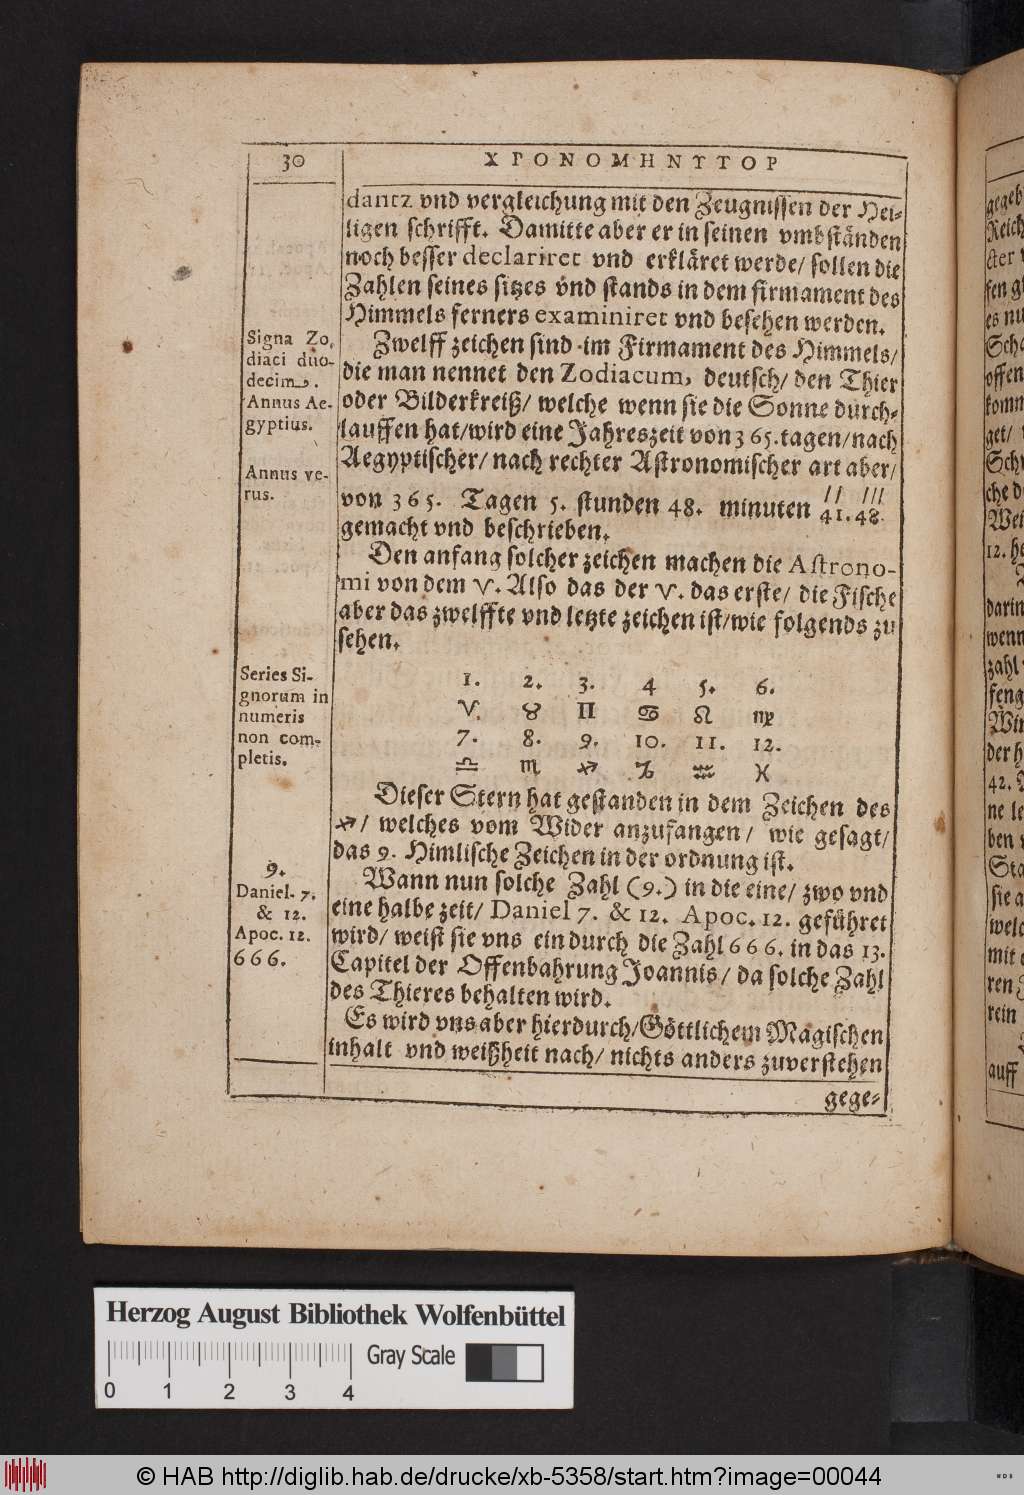 30
ΧΡΟΝΟΜΗΝΥΤΟΡ
dantz vnd vergleichung mit den Zeugnissen der Hei-
ligen schrifft. Damitte aber er in seinen vmbständen
noch besser declariret vnd erkläret werde/ sollen die
Zahlen seines sitzes vnd stands in dem firmament des
Himmels ferners examiniret vnd besehen werden.
Signa Zo,
diaci duo-
decim.
Annus Ae-
gyptius.
Annus ve-
rus.
Zwelff zeichen sind im Firmament des Himmels/
die man nennet den Zodiacum, deutsch/ den Thier
oder Bilderkreiß/ welche wenn sie die Sonne durch-
lauffen hat/wird eine Jahreszeit von 365.tagen/nach
Aegyptischer/ nach rechter Astronomischer art aber/
von 365. Tagen 5. stunden 48. minuten 41.48.
// ///
gemacht vnd beschrieben.
Den anfang solcher zeichen machen die Astrono-
mi von dem ♈. Also das der ♈. das erste/ die Fische
aber das zwelffte vnd letzte zeichen ist/wie folgends zu
sehen.
Series Si-
gnorum in
numeris
non com-
pletis.
1. 2. 3. 4 5. 6.
♈. ♉ ♊ ♋ ♌ ♍
7. 8. 9. 10. 11. 12.
♎ ♏ ♐ ♑ ♒ ♓
Dieser Stern hat gestanden in dem Zeichen des
♐/ welches vom Wider anzufangen/ wie gesagt/
das 9. Himlische Zeichen in der ordnung ist.
9.
Daniel. 7.
& 12.
Apoc. 12.
666.
Wann nun solche Zahl (9.) in die eine/ zwo vnd
eine halbe zeit/ Daniel 7. & 12. Apoc. 12. geführet
wird/ weist sie vns ein durch die Zahl 666. in das 13.
Capitel der Offenbahrung Joannis/ da solche Zahl
des Thieres behalten wird.
Es wird vns aber hierdurch/Göttlichem Magischen
inhalt vnd weißheit nach/ nichts anders zuverstehen
gege-
Herzog August Bibliothek Wolfenbüttel
0 1 2 3 4
Gray Scale
© HAB http://diglib.hab.de/drucke/xb-5358/start.htm?image=00044